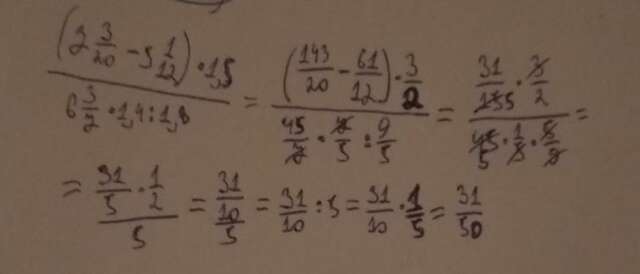 (7 3/20 - 5 1/12) · 1,5 / 6 3/7 · 1,4 : 1,8 = (143/20 - 61/12) · 3/2 / 45/7 · 7/5 : 9/5 = 31/15 5 · 3/2 / 45 5 · 1/5 · 5/9 =
= 31/5 · 1/2 / 5 = 31/10 / 5 = 31/10 : 5 = 31/10 · 1/5 = 31/50